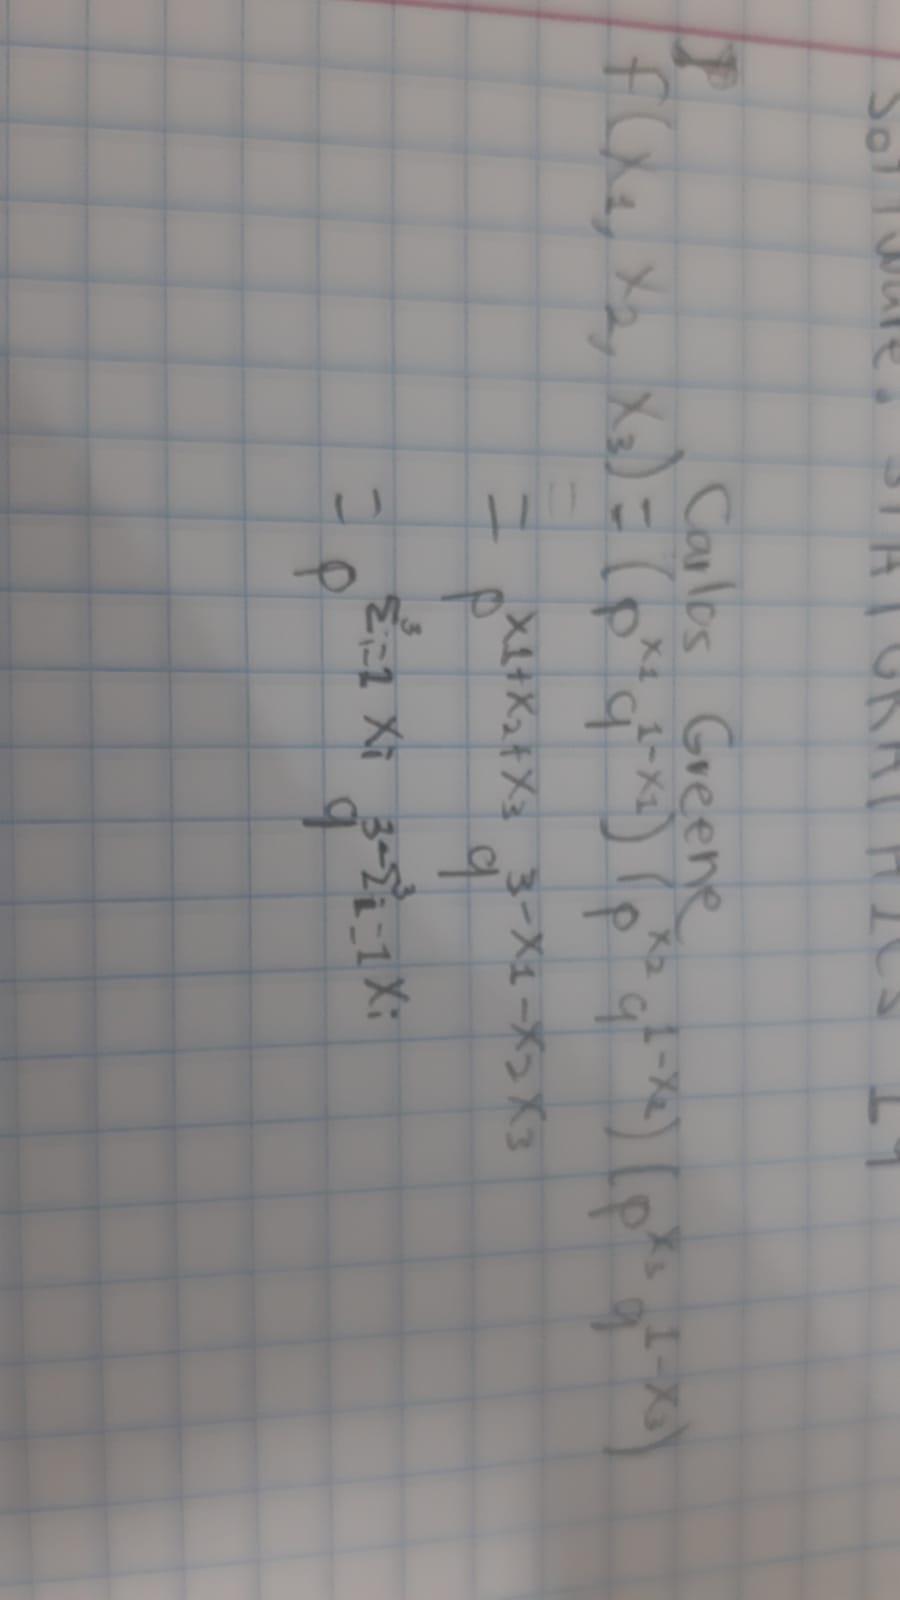 SOFTWARE. STATGRAPHICS 19
Carlos Greene
f(x1, x2, x3) = (p^x1 q^1-x1) (p^x2 q^1-x2) (p^x3 q^1-x3)
=
= p^x1+x2+x3 q^3-x1-x2 x3
= p^Σ^3 i=1 xi q^3-Σ^3 i=1 xi